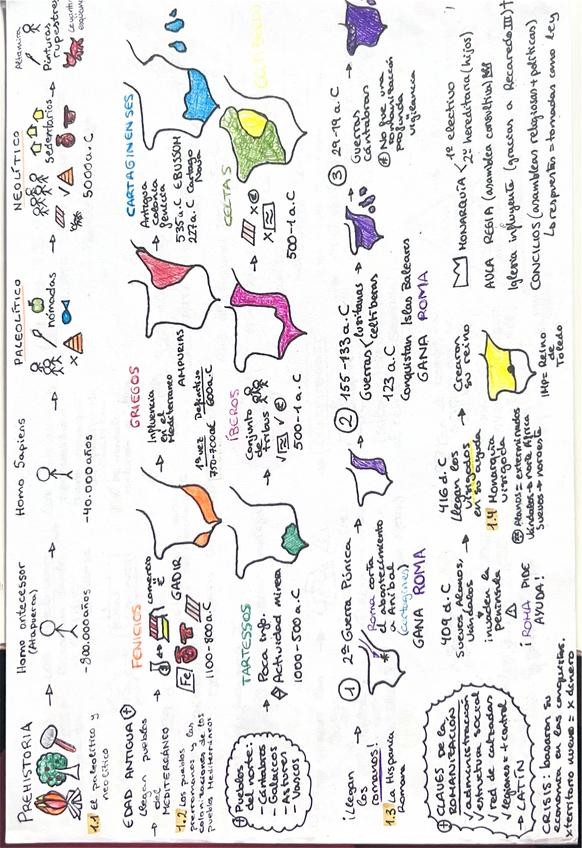 PREHISTORIA
1.1 el paleolítico y
neolítico
Homo antecessor
(Atapuerca)
-800.000 años
Homo Sapiens
-40.000 años
PALEOLÍTICO
nómadas
NEOLÍTICO
sedentarios
5000 a.C
Altamira
Pinturas
rupestres
EDAD ANTIGUA
llegan pueblos
del
MEDITERRÁNEO
1.2 Los pueblos
prerromanos y las
colonizaciones de los
pueblos Mediterráneos.
FENICIOS
comercio
GADIR
Fe
1100-800 a.C
GRIEGOS
Influencia
en el
Mediterráneo
AMPURIAS
1ª vez Definitivo
750-700 a.C 600 a.C
CARTAGINENSES
Antigua
colonia
fenicia
535 a.C EBUSSOM
227 a.C Cartago
Nova
Pueblos
del norte:
- Cántabros
- Galaicos
- Astures
- Vascos
TARTESSOS
Poca info.
Actividad minera
1000-500 a.C
ÍBEROS
Conjunto
de
tribus
500-1 a.C
CELTAS
500-1 a.C
¡llegan
los
romanos!
1.3 La Hispania
Romana
1 2ª Guerra Púnica
Roma corta
el abastecimiento
a Aníbal
(cartagines)
GANA ROMA
2 155-133 a.C
Guerras lusitanas
celtíberas
123 a.C
Conquistan Islas Baleares
GANA ROMA
3 29-19 a.C
Guerras
cántabras
No hubo una
romanización
profunda
vigilancia
CLAVES DE LA
ROMANIZACIÓN
administración
estructura social
red de calzadas
legiones = + control
LATÍN
CRISIS: basaron su
economía en las conquistas.
x territorio nuevo = x dinero
409 d.C
Suevos Alanos,
Vándalos
invaden la
península
¡ROMA PIDE
AYUDA!
416 d.C
Llegan los
visigodos
en su ayuda
1.4 Monarquía
visigoda
Alanos = exterminados
Vándalos → norte África
Suevos → noroeste
Crearon
su reino
IMP = Reino
de
Toledo
MONARQUÍA 1º electivo
2º hereditaria (hijos)
AULA REGIA (asamblea consultiva)
Iglesia influyente (gracias a Recaredo III)
CONCILIOS (asambleas religiosas + políticas)
Lo respuestas = tomadas como ley